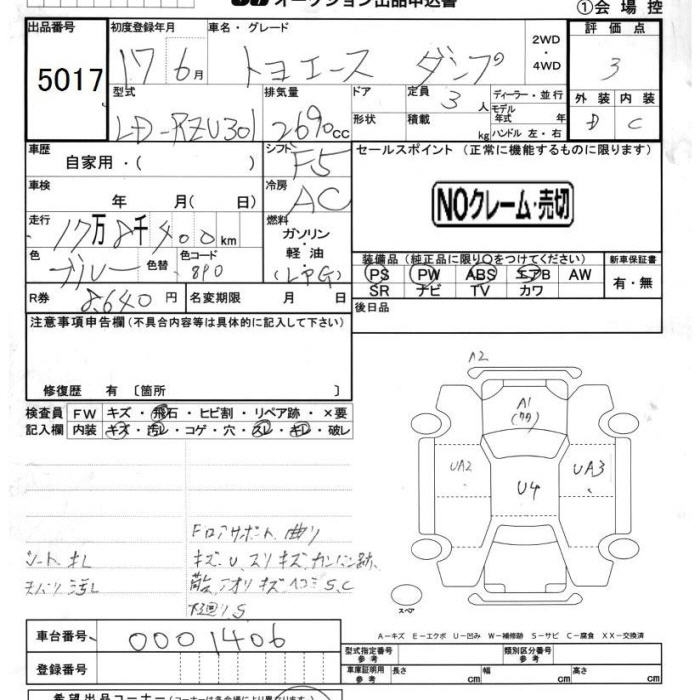 オークション出品申込書
①会場控
出品番号 初度登録年月 車名・グレード 2WD・4WD 評価点
5017 17 6月 トヨエース ダンプ 3
型式 排気量 ドア 定員 3人 ディーラー・並行 外装 内装
LD-RZU301 2690cc 形状 積載 kg モデル年式 年 ハンドル 左・右 D C
車歴 自家用・( ) シフト F5 セールスポイント (正常に機能するものに限ります)
車検 年 月( 日) 冷房 AC
NOクレーム・売切
走行 17万8千400km 燃料 ガソリン・軽油 (LPG)
色 ブルー 色替 色コード 8P0
装備品 (純正品に限り○をつけてください) 新車保証書
PS PW ABS エアB AW 有・無
SR ナビ TV カワ
R券 8,640円 名変期限 月 日
後日品
注意事項申告欄 (不具合内容等は具体的に記入して下さい)
修復歴 有 〔箇所 〕
検査員 FW キズ・飛石・ヒビ割・リペア跡・×要
記入欄 内装 キズ・汚レ・コゲ・穴・スレ・キレ・破レ
A2
A1
(ワク)
UA2 U4 UA3
Fロアサポート 曲り
シートキレ キズ、U、スリキズ、カンバン跡、
天バリ汚レ 散、アオリキズヘコミS、C
下廻りS
スペア
A-キズ E-エクボ U-凹み W-補修跡 S-サビ C-腐食 XX-交換済
車台番号 0001406
型式指定番号 参考 類別区分番号 参考
登録番号 車庫証明用 参考 長さ cm 幅 cm 高さ cm
希望出品コーナー (コーナーは各会場により異なります)